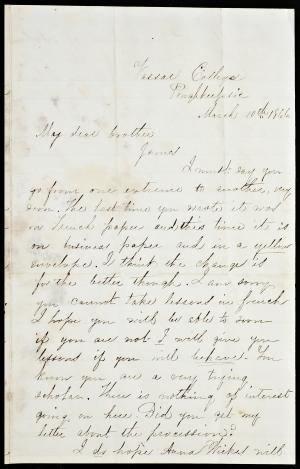 Vassar College
Poughkeepsie
March 10th 1866
My dear brother
James
I must say you
go from one extreme to another, very
soon. The last time you wrote it was
on french paper and this time it is
on business paper and in a yellow
envelope. I think the change is
for the better though. I am sorry
you cannot take lessons in french
I hope you will be able to soon
if you are not I will give you
lessons if you will behave. You
know you are a very trying
scholar. There is nothing of interest
going on here. Did you get my
letter about the procession?
I do hope Anna Wickes will